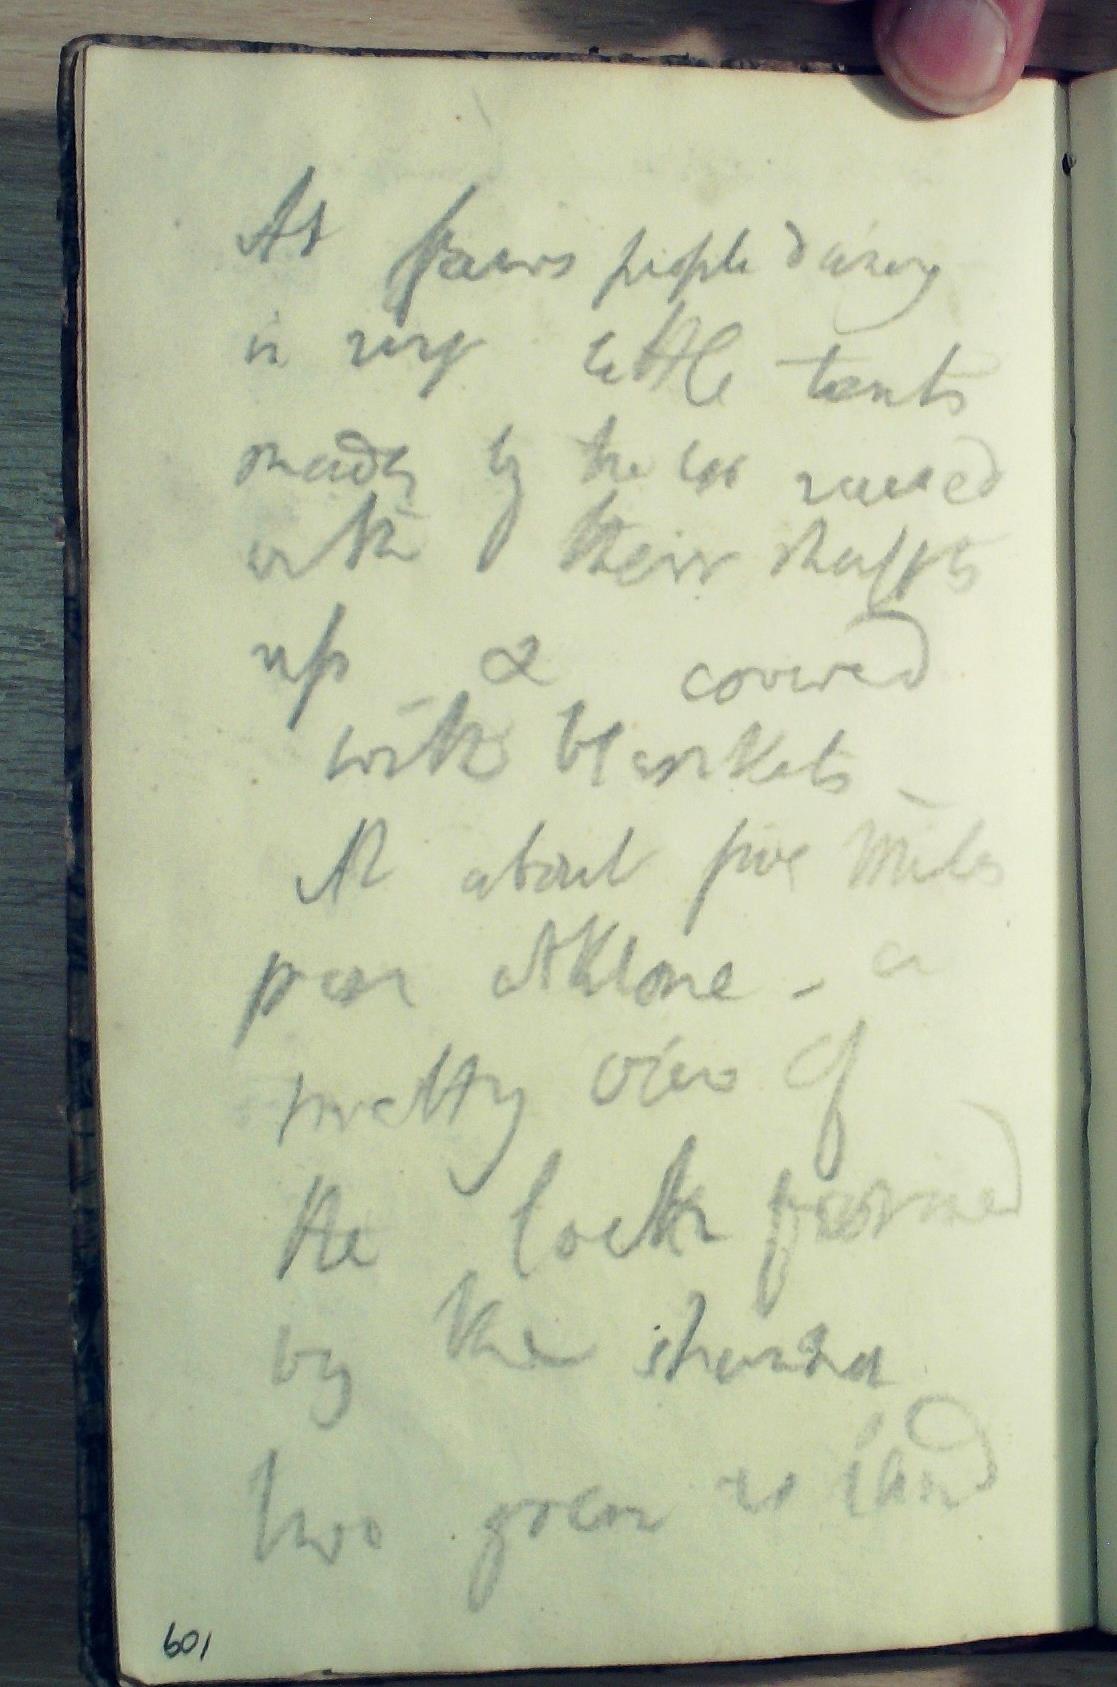 At fairs people dining
in very little tents
made by the cars raised
with their shafts
up & covered
with blankets -
At about five Miles
from Athlone - a
pretty view of
the lock formed
by the shannon
two green island
601